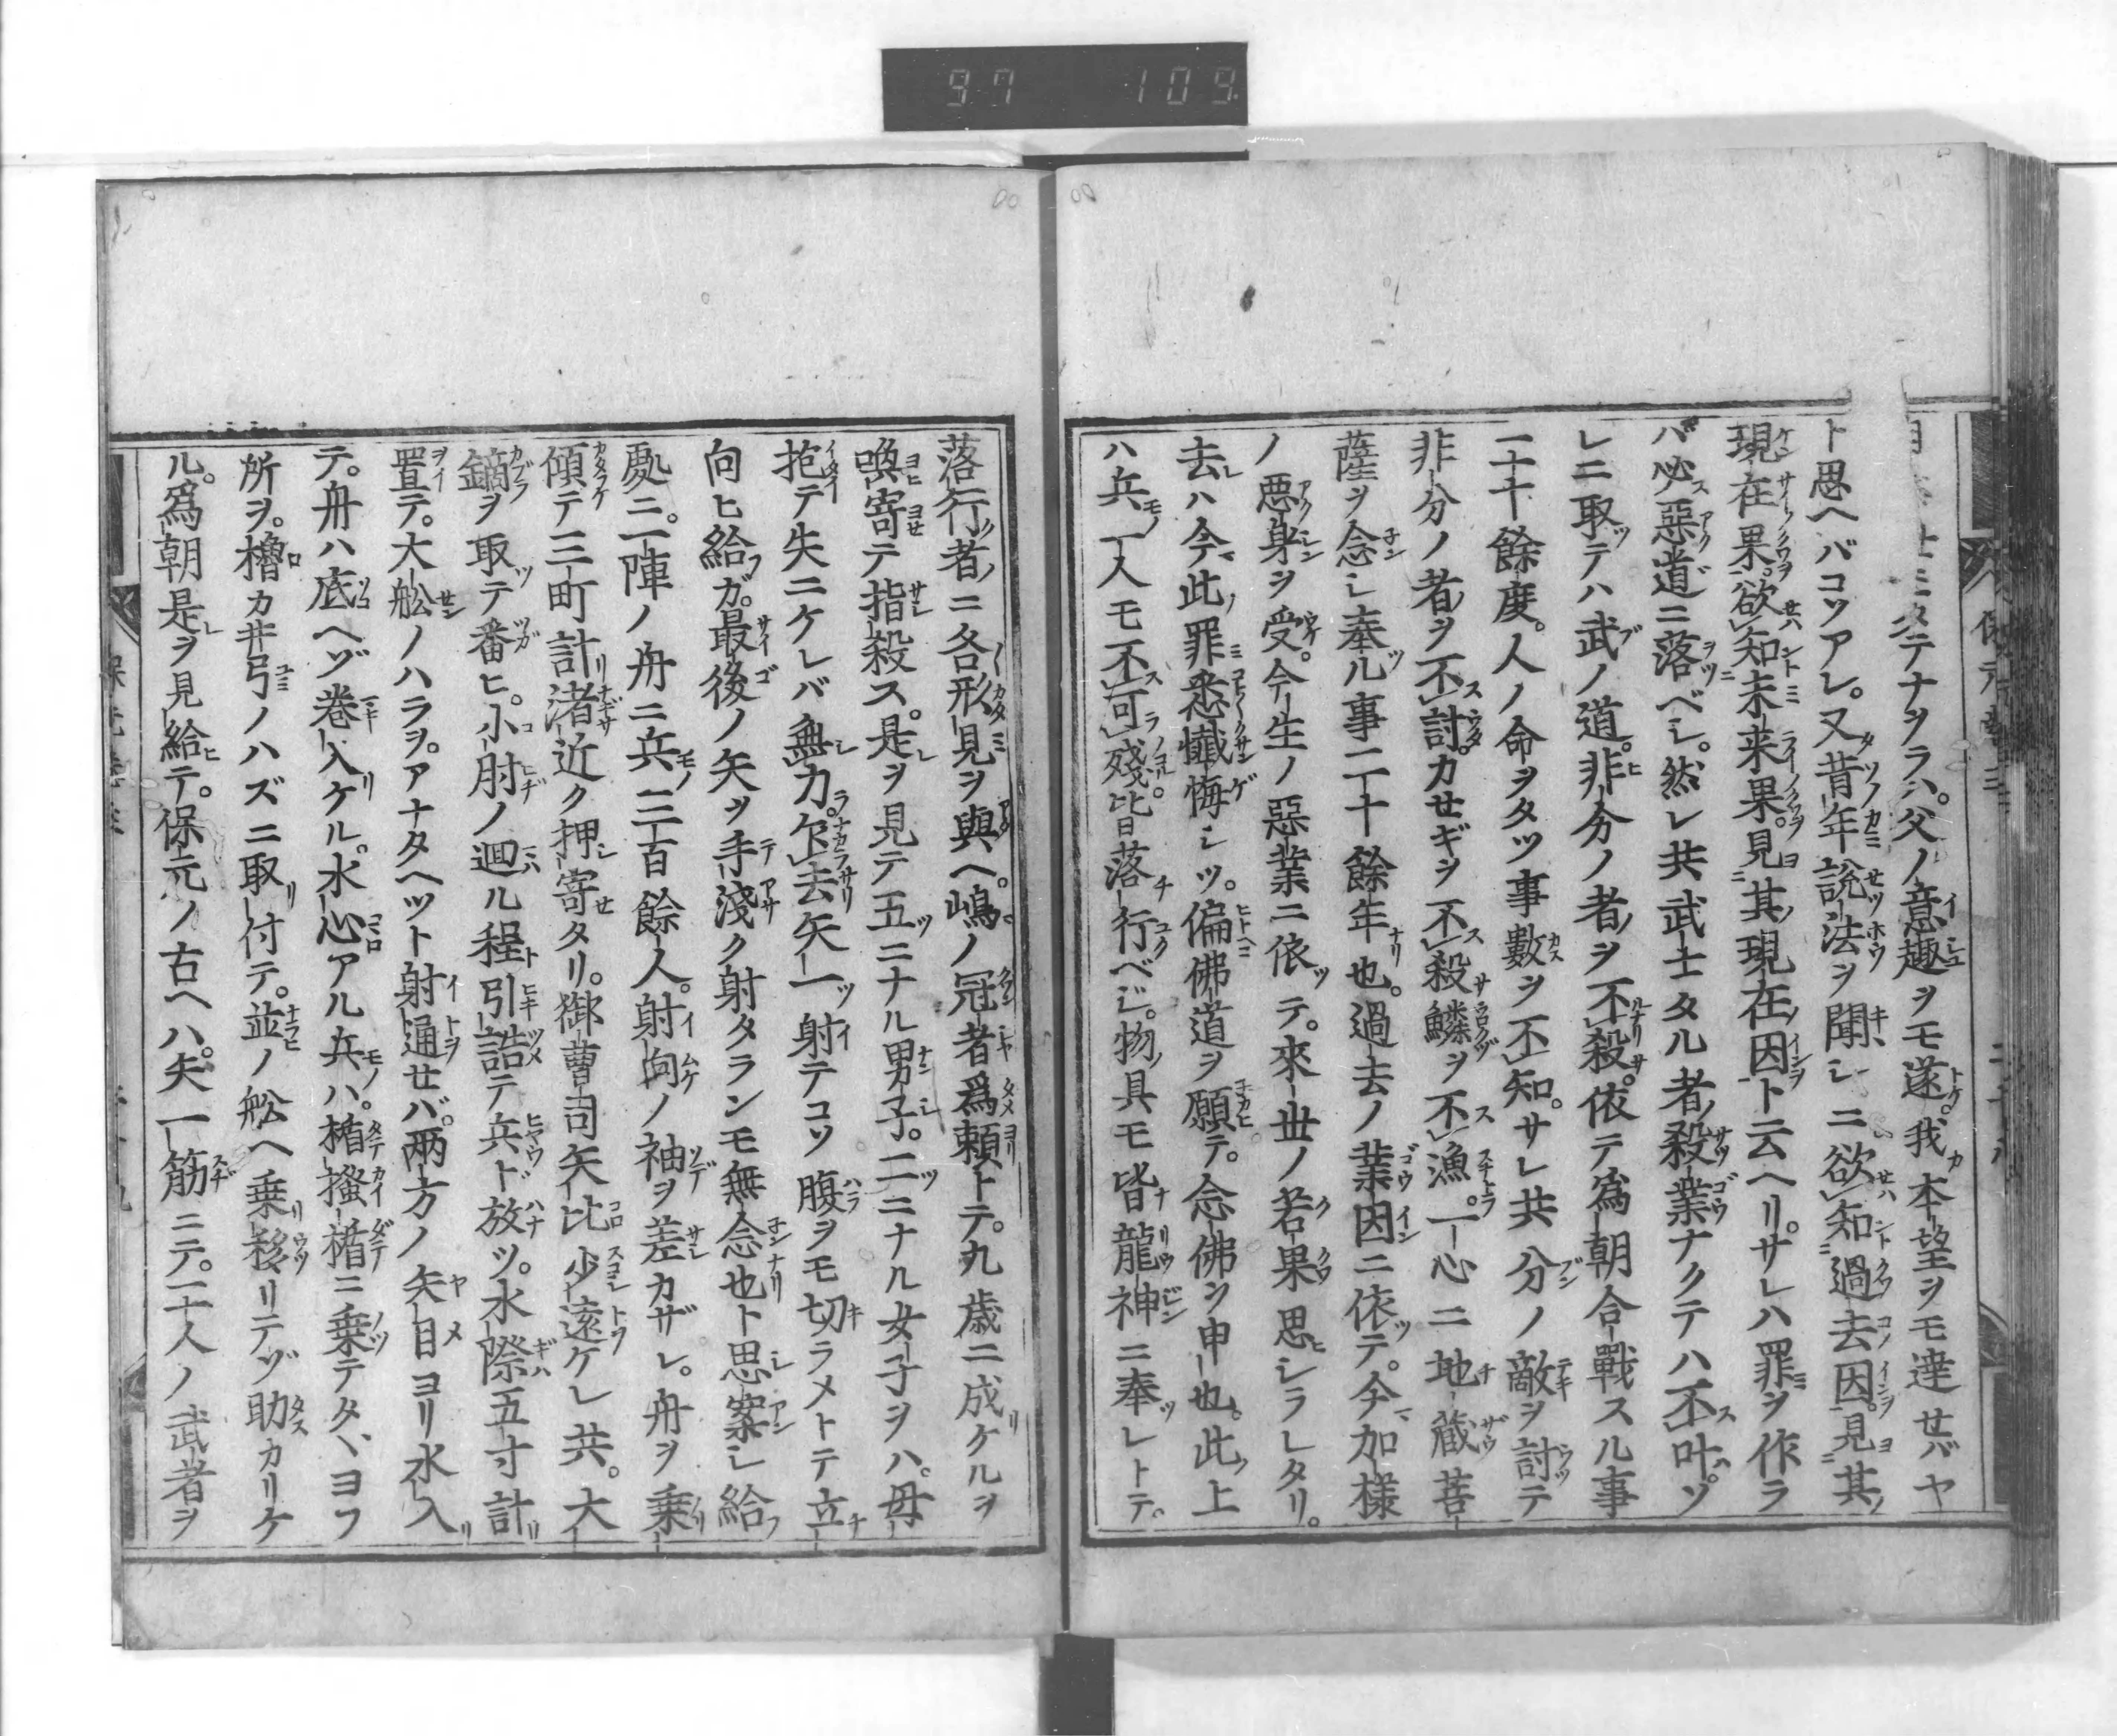 97 109
ミタテナヲラハ。父ノ意趣ヲモ遂。我本望ヲモ達せバヤ
ト思ヘバコソアレ。又昔年說法ヲ聞シニ欲知過去因。見其
現在果。欲知未来果。見其現在因ト云ヘリ。サレハ罪ヲ作ラ
バ必惡道ニ落ベシ。然レ共武士タル者殺業ナクテハ不叶。ソ
レニ取テハ武ノ道。非分ノ者ヲ不殺。依テ爲朝合戰スル事
二十餘度。人ノ命ヲタツ事數ヲ不知。サレ共分ノ敵ヲ討テ
非分ノ者ヲ不討。カせギヲ不殺鱗ヲ不漁。一心ニ地藏菩
薩ヲ念シ奉ル事二十餘年也。過去ノ業因ニ依テ。今加様
ノ悪身ヲ受。今生ノ惡業ニ依テ。來世ノ苦果思シラレタリ。
去ハ今此罪悉懺悔シツ。偏佛道ヲ願テ。念佛ヲ申也。此上
ハ兵一人モ不可殘。皆落行ベシ。物具モ皆龍神ニ奉レトテ。
落行者ニ各形見ヲ與ヘ。嶋ノ冠者爲頼トテ。九歳ニ成ケルヲ
喚寄テ指殺ス。是ヲ見テ五ニナル男子。二ニナル女子ヲハ。母
抱テ失ニケレバ無力。乍去矢一射テコソ腹ヲモ切ラメトテ立
向ヒ給ガ。最後ノ矢ヲ手淺ク射タランモ無念也ト思案シ給
處ニ。一陣ノ舟ニ兵三百餘人。射向ノ袖ヲ差カザレ。舟ヲ乗
傾テ三町計渚近ク押寄タリ。御曹司矢比少遠ケレ共。大
鏑ヲ取テ番ヒ。小肘ノ廻ル程引詰テ兵ド放ツ。水際五寸計
置テ。大舩ノハラヲ。アナタヘツト射通せバ。兩方ノ矢目ヨリ水入
テ。舟ハ底ヘゾ巻入ケル。水心アル兵ハ。楯搔楯ニ乗テタヽヨフ
所ヲ。櫓カ井弓ノハズニ取付テ。並ノ舩ヘ乗移リテゾ助カリケ
ル。爲朝是ヲ見給テ。保元ノ古ヘハ。矢一筋ニテ。二十人ノ武者ヲ